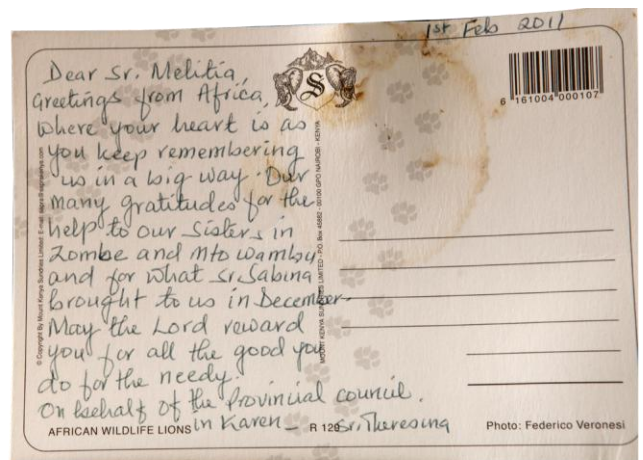 1st Feb 2011
Dear Sr. Melitia,
Greetings from Africa,
where your heart is as
you keep remembering
us in a big way. Our
many gratitudes for the
help to our Sisters in
Zombe and Mto Wambu
and for what Sr. Sabina
brought to us in December.
May the Lord reward
you for all the good you
do for the needy.
On behalf of the Provincial council.
in Karen _ Sr. Theresina
S
6 161004 000107
© Copyright By Mount Kenya Sundries Limited. E-mail:
MOUNT KENYA SUNDRIES LIMITED - P.O. Box 45882 - 00100 GPO NAIROBI - KENYA
AFRICAN WILDLIFE LIONS
R 129
Photo: Federico Veronesi